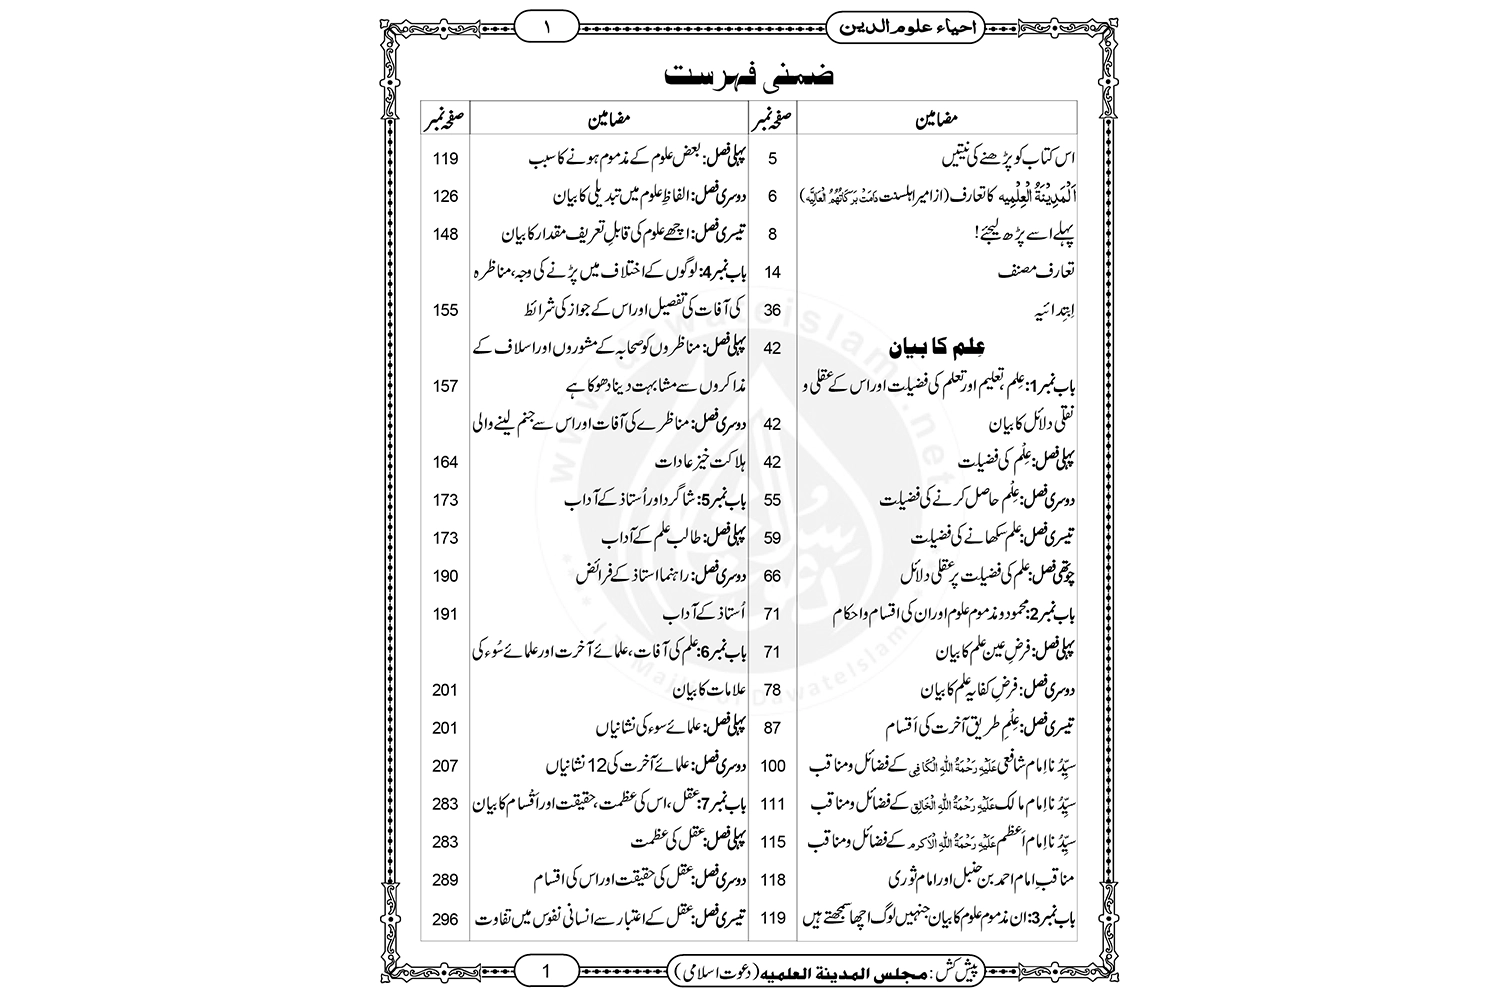 احیاء علوم الدین
۱
ضمنی فہرست
مضامین صفحہ نمبر
اس کتاب کو پڑھنے کی نیتیں 5
اَلْمَدِیْنَۃُ الْعِلْمِیہ کا تعارف (از امیر اہلسنت دَامَتْ بَرَکَاتُہُمُ الْعَالِیَہ) 6
پہلے اسے پڑھ لیجئے! 8
تعارف مصنف 14
اِبْتِدائیہ 36
عِلم کا بیان 42
باب نمبر1: عِلم، تعلیم اور تعلم کی فضیلت اور اس کے عقلی و
نقلی دلائل کا بیان 42
پہلی فصل: عِلْم کی فضیلت 42
دوسری فصل: عِلْم حاصل کرنے کی فضیلت 55
تیسری فصل: علم سکھانے کی فضیلت 59
چوتھی فصل: علم کی فضیلت پر عقلی دلائل 66
باب نمبر2: محمود و مذموم علوم اور ان کی اقسام و احکام 71
پہلی فصل: فرضِ عین علم کا بیان 71
دوسری فصل: فرضِ کفایہ علم کا بیان 78
تیسری فصل: عِلْمِ طریقِ آخرت کی اَقسام 87
سیِّدُنا اِمام شافعی عَلَیْہِ رَحْمَۃُ اللہِ الْکَافِی کے فضائل و مناقب 100
سیِّدُنا اِمام مالک عَلَیْہِ رَحْمَۃُ اللہِ الْخَالِق کے فضائل و مناقب 111
سیِّدُنا اِمام اَعظم عَلَیْہِ رَحْمَۃُ اللہِ الْاَکرم کے فضائل و مناقب 115
مناقبِ امام احمد بن حنبل اور امام ثوری 118
باب نمبر3: ان مذموم علوم کا بیان جنہیں لوگ اچھا سمجھتے ہیں 119
مضامین صفحہ نمبر
پہلی فصل: بعض علوم کے مذموم ہونے کا سبب 119
دوسری فصل: الفاظِ علوم میں تبدیلی کا بیان 126
تیسری فصل: اچھے علوم کی قابلِ تعریف مقدار کا بیان 148
باب نمبر4: لوگوں کے اختلاف میں پڑنے کی وجہ، مناظرہ
کی آفات کی تفصیل اور اس کے جواز کی شرائط 155
پہلی فصل: مناظروں کو صحابہ کے مشوروں اور اسلاف کے
مذاکروں سے مشابہت دینا دھوکا ہے 157
دوسری فصل: مناظرے کی آفات اور اس سے جنم لینے والی
ہلاکت خیز عادات 164
باب نمبر5: شاگرد اور اُستاذ کے آداب 173
پہلی فصل: طالب علم کے آداب 173
دوسری فصل: راہنما استاذ کے فرائض 190
اُستاذ کے آداب 191
باب نمبر6: علم کی آفات، علمائے آخرت اور علمائے سُوء کی
علامات کا بیان 201
پہلی فصل: علمائے سوء کی نشانیاں 201
دوسری فصل: علمائے آخرت کی 12 نشانیاں 207
باب نمبر7: عقل، اس کی عظمت، حقیقت اور اَقْسام کا بیان 283
پہلی فصل: عقل کی عظمت 283
دوسری فصل: عقل کی حقیقت اور اس کی اقسام 289
تیسری فصل: عقل کے اعتبار سے انسانی نفوس میں تفاوت 296
پیش کش: مجلس المدینۃ العلمیہ (دعوت اسلامی)
1
www.dawateislami.net
I.T Majlis of DawateIslami